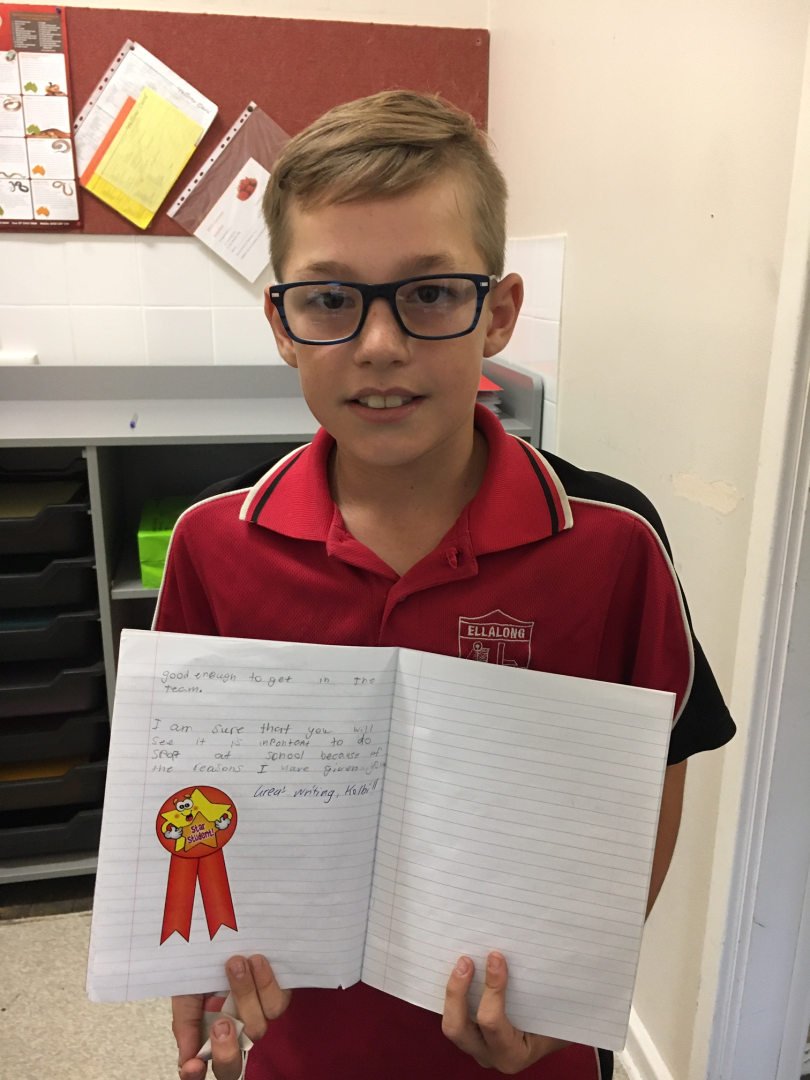 ELLALONG
good enough to get in the
team.
I am sure that you will
see it is inportent to do
sport at school because of
the reasons I have given you
Great writing, Kolbi!!
Star
Student!